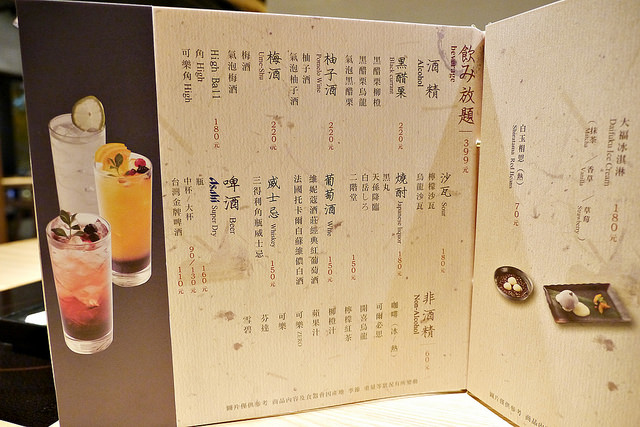 飲み放題 399元
beverage
酒精
Alcohol
黑醋栗 220元
Black currant
黑醋栗柳橙
黑醋栗烏龍
氣泡黑醋栗
柚子酒 220元
Pomelo Wine
柚子酒
氣泡柚子酒
梅酒 220元
Ume-Shu
梅酒
氣泡梅酒
High Ball 180元
角 High
可樂角 High
沙瓦 Sour 180元
檸檬沙瓦
烏龍沙瓦
燒酎 Japanese liquor 180元
黑丸
天孫降臨
白岳しろ
二階堂 150元
葡萄酒 Wine 150元
維妮蔻酒莊經典紅葡萄酒
法國托卡爾白蘇維儂白酒
威士忌 Whiskey 150元
三得利角瓶威士忌
啤酒 Beer
Asahi Super Dry
瓶 160元
中杯/大杯 90/130元
台灣金牌啤酒 110元
非酒精 60元
Non-Alcohol
咖啡(冰/熱)
可爾必思
開喜烏龍
檸檬紅茶
柳橙汁
蘋果汁
可樂 ZERO
可樂
芬達
雪碧
大福冰淇淋 180元
Daifuku Ice Cream
(抹茶/香草/草莓)
Matcha Vanilla Strawberry
白玉相思(熱) 70元
Shiratama Red Beans
圖片僅供參考
圖片僅供參考